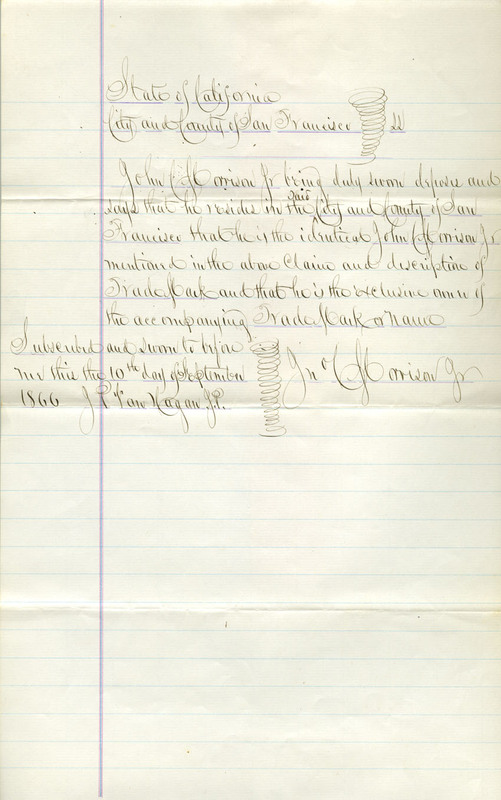 State of California
City and County of San Francisco ss
John C Morrison Jr being duly sworn deposes and
says that he resides in the said City and County of San
Francisco that he is the identical John C Morrison Jr
mentioned in the above Claim and description of
Trade Mark and that he is the exclusive owner of
the accompanying Trade Mark or Name
Subscribed and sworn to before
me this the 10th day of September
1866 J P Van Hagan J.P.
Jno C Morrison Jr